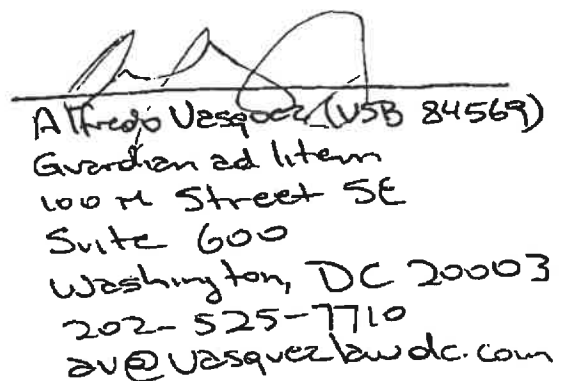 Alfredo Vasquez (VSB 84569)
Guardian ad litem
100 M Street SE
Suite 600
Washington, DC 20003
202-525-7710
av@vasquezlawdc.com